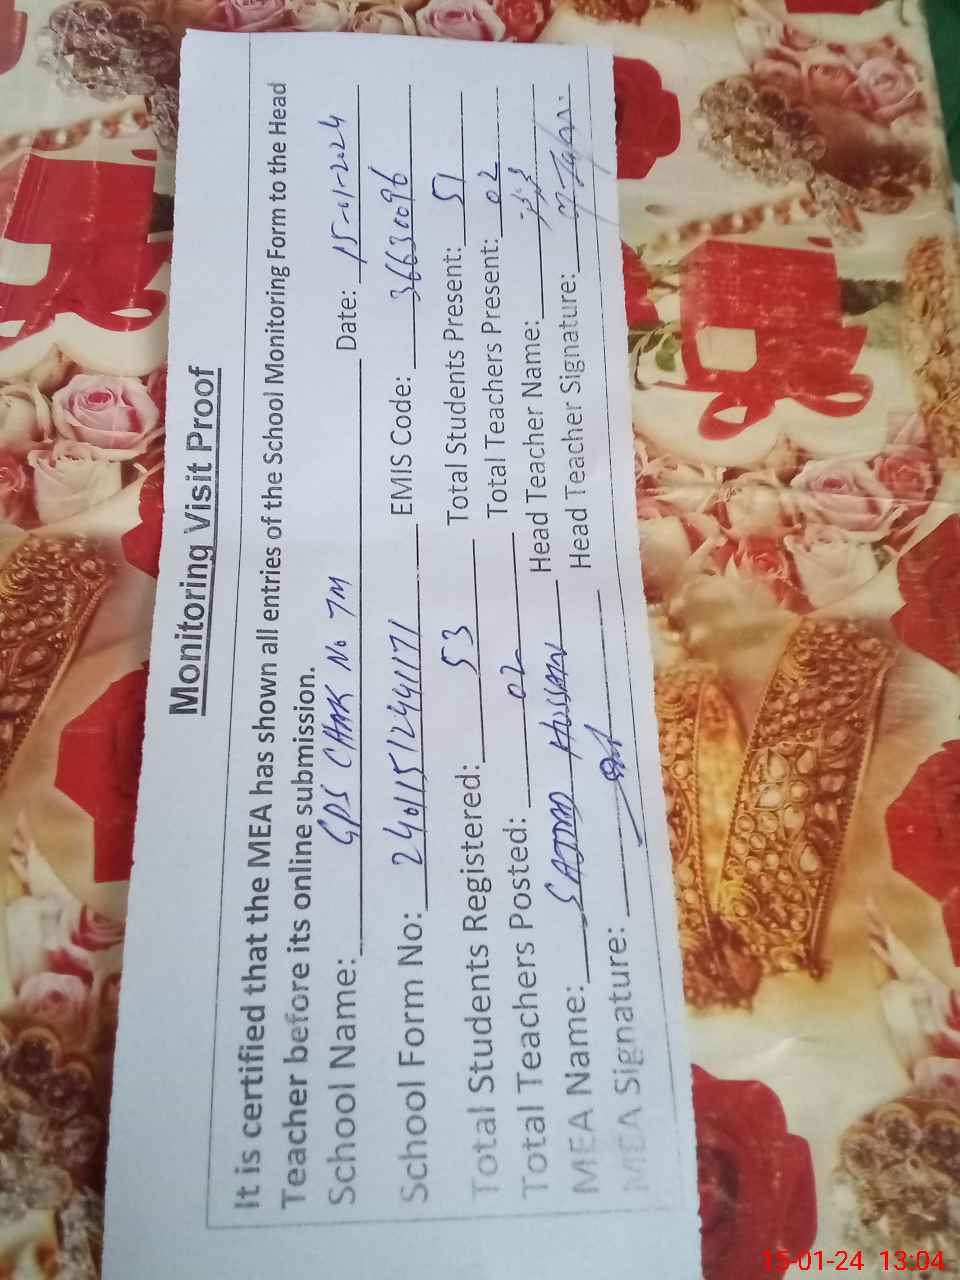 Monitoring Visit Proof
It is certified that the MEA has shown all entries of the School Monitoring Form to the Head
Teacher before its online submission.
School Name: GPS CHAK No 7M Date: 15-01-2024
School Form No: 240115124941171 EMIS Code: 36630096
Total Students Registered: 53 Total Students Present: 51
Total Teachers Posted: 02 Total Teachers Present: 02
MEA Name: SAJJAD HUSSAIN Head Teacher Name:
MEA Signature: Head Teacher Signature:
15-01-24 13:04